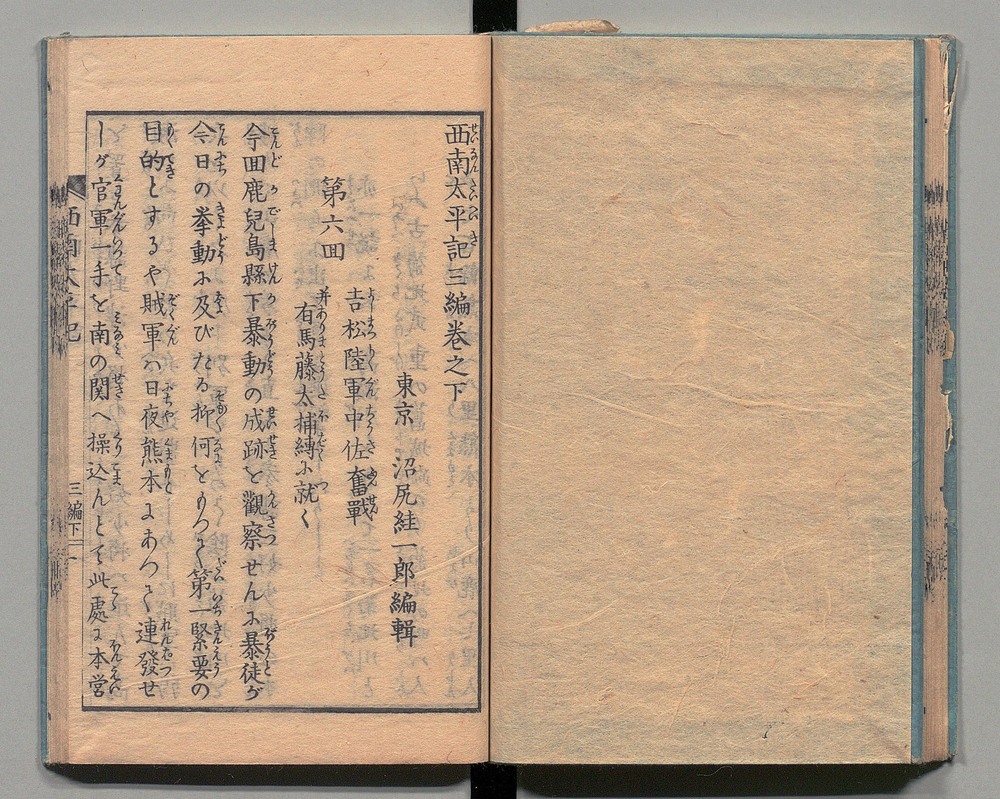 西南太平記三編卷之下
東京 沼尻絓一郎編輯
第六囬
吉松陸軍中佐奮戰
并有馬藤太捕縛ふ就く
今囬鹿兒島縣下暴動の成跡を觀察せんふ暴徒ガ
今日の挙動ふ及びたる抑何をもつて第一緊要の
目的とするや賊軍ハ日夜熊本よあつて連發せ
しガ官軍一手を南の関へ操込んとて此處に本営
西南太平記
三編下 一